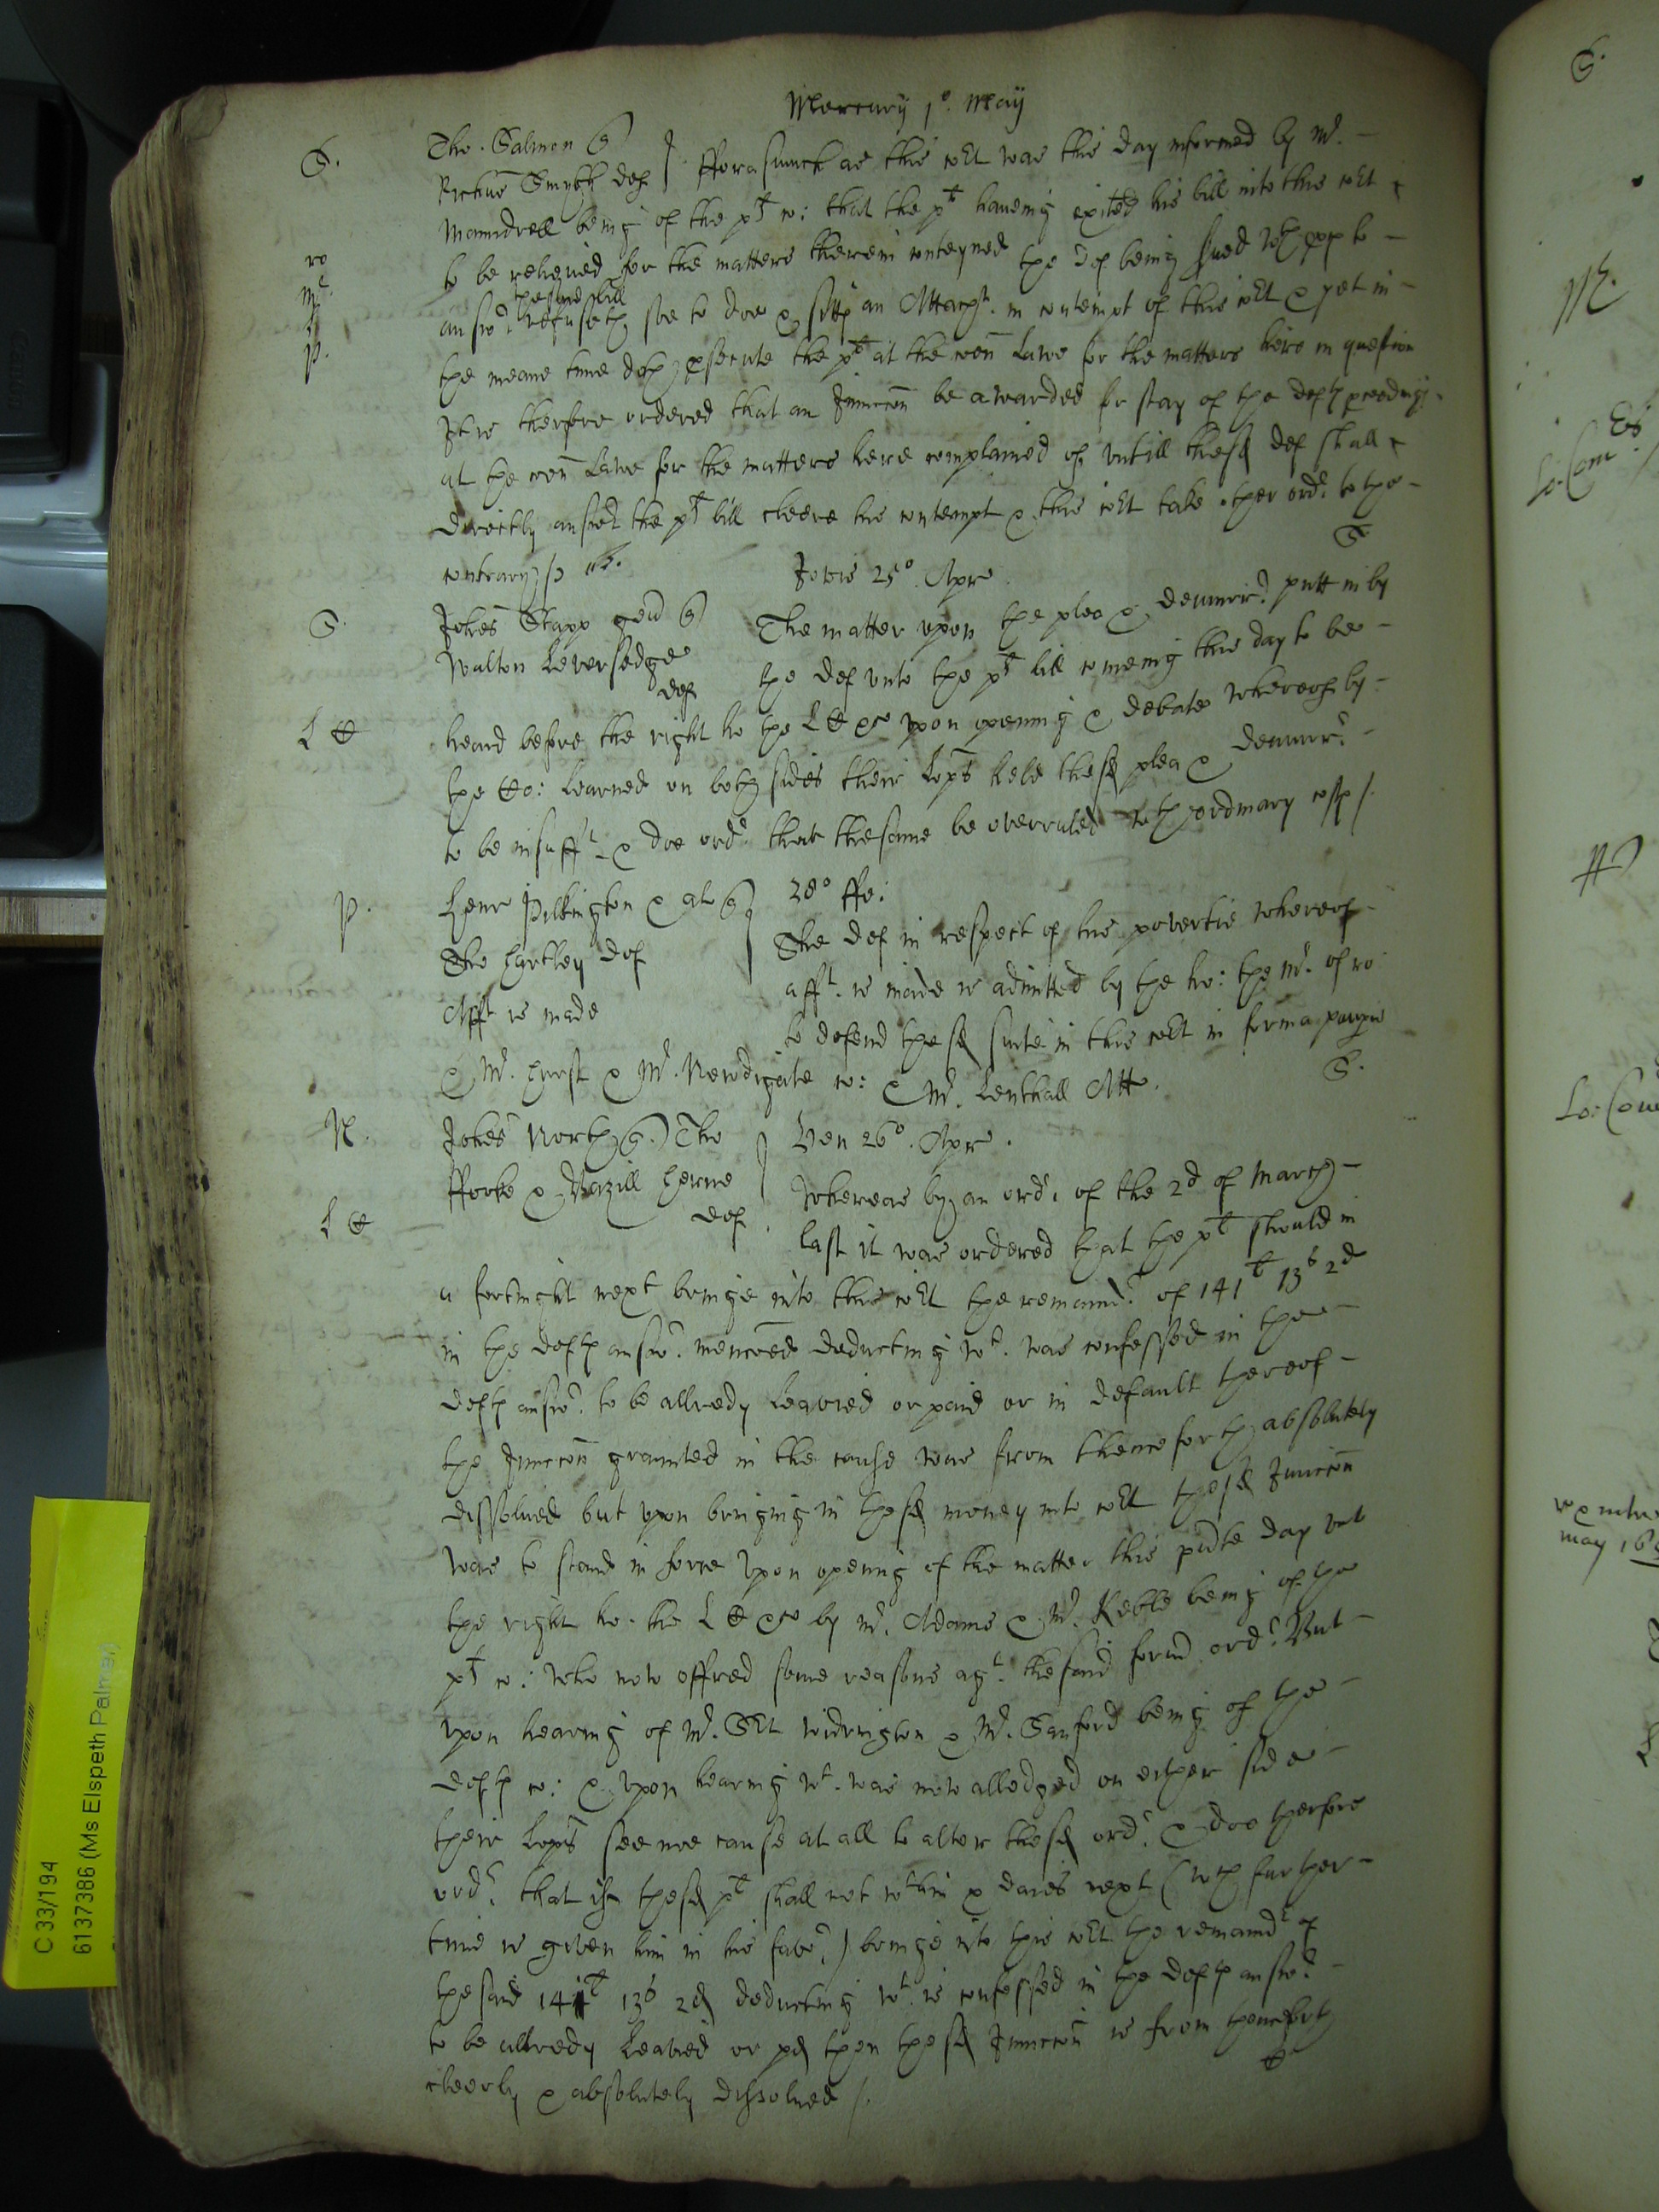 Mercurij 1o. Maij
S.
Tho. Salmon q
Smyth def } fforasmuch as this cort was this day informed by Mr. -
Maundrell being of the plt co: that the plt haveing exited his bill into this cort
to be releived for the matters therein conteyned the def being served wth pces to -
the same bill
answr. refuseth soe to doe & sitts an Attachmt. in contempt of this cort & yet in -
ro
Mr.
P.
the meane time doth psecute the plt at the comon Lawe for the matters here in question
It is therfore ordered that an Iniuccon be awarded for stay of the defts proceedings
at the comon Lawe for the matters here complained of, vntill the sd def shall
directly answr the plts bill cleere his contempt & this cort take other ordr. to the -
contrary /
S
Jovis 25o. Apr.
S.
Johes Stapp gen q
Walton Leversedge
def
The matter vpon the plea & demurr. putt in by
the def vnto the plts bill comeing this day to be -
L C
heard before the right ho the L C &c vpon opening & debate whereof by -
the Co: Learned on both sides their Lopps held the sd plea & demurr. -
to be insufft. & doe ordr that the same be overruled wth ordinary costs /.
P.
Henr Pilkington & al q
Tho Hartley def
Afft is made
28o ffe:
The def in respect of his povertie whereof -
afft. is made is admitted by the ho: the Mr. of ro
to defend the sd suite in this cort in forma paupis
& Mr. Hurst & Mr. Newdigate co: & Mr. Lenthall Att.
S.
N.
Johes North q. Tho
fforke & Bazill Herne
def.
Ven 26o. Apr.
Whereas by an ordr. of the 2d of March -
L C
last it was ordered that the plt should in
a fortnight next bringe into this cort the remaindr. of 141l 13s 2d
in the defts answr. menconed deducting wt. was confessed in the -
defts answr. to be allredy Leavied or paid or in default thereof -
the Iniuccon graunted in the cause was from thenceforth absolutely
dissolued but vpon bringing in the sd money into cort the sd Iniuccon
was to stand in force Vpon opening of the matter this pnte day vnt
the right ho. the L C &c by Mr. Adams & Mr. Keble being of the
plts co: who now offred some reasons agt. the said formr ordr. But -
vpon hearing of Mr. Srt Widrington & Mr. Sanford being of the -
defts co: & vpon hearing wt. was now alledged on either side -
their Lopps see noe cause at all to alter the sd ordr. & doe therfore
ordr. that if the sd plt shall not wthin x daies next (wch further -
time is given him in his favor.) bringe into this cort the remaindr of
the said 141l 13s 2d deducting wt. is confessed in the defts answr. -
to be allredy Leavied or pd then the sd Iniuccon is from thenceforth
cleerly & absolutely dissolued /.
C 33/194
61 37386 (Ms Elspeth Palmer)
S.
M.
Lo: Com
Lo: Com
may